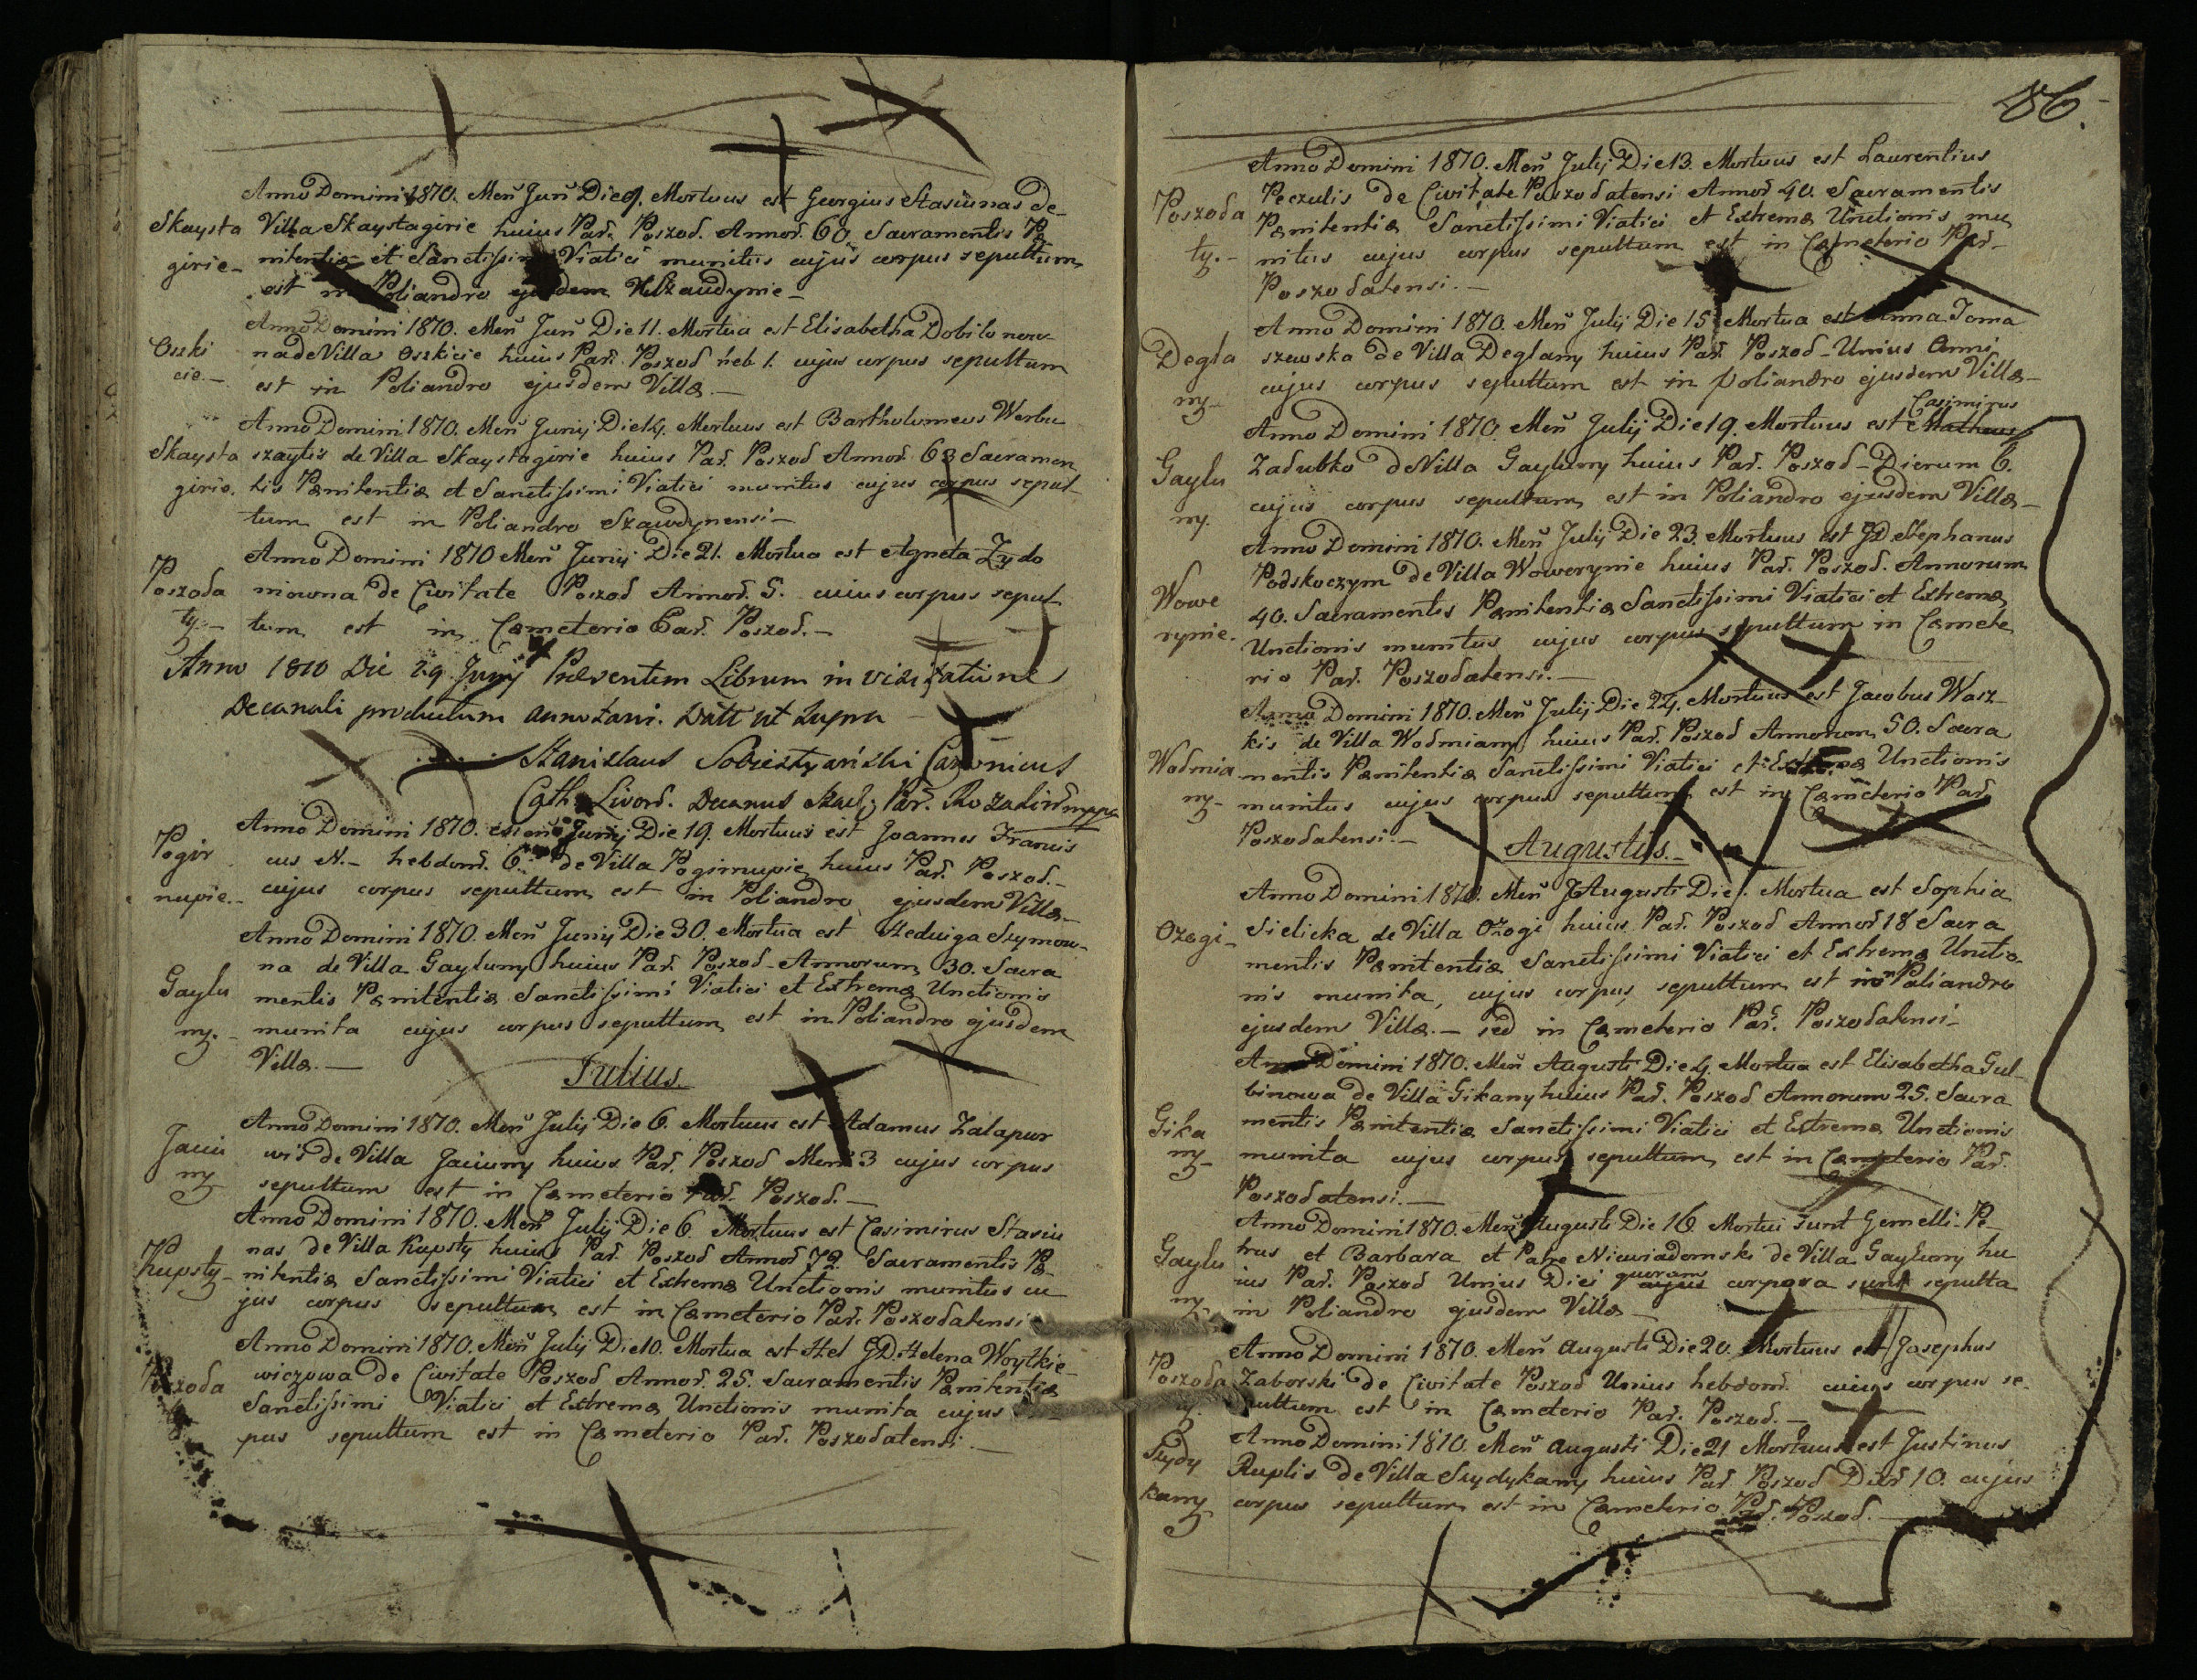 Anno Domini 1870. Meñ Juñ Die 9. Mortuus est Georgius Stasiunas de
Skaysta Villa Skaystagirie huius Par. Poszod. Annor. 60. Sacramentis Pæ
girie nitentiæ et Sanctissimi Viatici munitus cujus corpus sepultum
est in Poliandro ejusdem
Anno Domini 1870. Meñ Juñ Die 11. Mortua est Elisabetha Dobilonow
Oszki na de Villa Oszkicie huius Par. Poszod heb 1. cujus corpus sepultum
cie. est in Poliandro ejusdem Villæ.
Anno Domini 1870. Meñ Junij Die 14. Mortuus est Bartholomeus Warbu
Skaysta szaytis de Villa Skaystagirie huius Par. Poszod Annor. 68 Sacramen
girie. tis Pænitentiæ et Sanctissimi Viatici munitus cujus corpus sepul
tum est in Poliandro Szawdynensi
Anno Domini 1870 Meñ Junij Die 21. Mortua est Agneta Zydo
Poszoda niowna de Civitate Poszod Annor. 5. cuius corpus sepul
ty tum est in Cæmeterio Par. Poszod.
Anno 1810 Die 29 Junij Præsentem Librum in visitatione
Decanali productum annotavi. Datt ut supra
Stanislaus Sobieszczański Canonicus
Cath. Livon. Decanus Szad. Par.
Anno Domini 1870. Meñ Junij Die 19. Mortuus est Joannes Francis
Pogir cus N. hebdom. 6. de Villa Pogirnupie huius Par. Poszod.
nupie. cujus corpus sepultum est in Poliandro ejusdem Villæ
Anno Domini 1870. Meñ Junij Die 30. Mortua est Heduiga Szymow
na de Villa Gayluny huius Par. Poszod Annorum 30. Sacra
Gaylu mentis Pænitentiæ Sanctissimi Viatici et Extremæ Unctionis
ny. munita cujus corpus sepultum est in Poliandro ejusdem
Villæ.
Julius.
Anno Domini 1870. Meñ Julij Die 6. Mortuus est Adamus Zalapur
Jaciu wis de Villa Jaciuny huius Par. Poszod Mens 3 cujus corpus
ny sepultum est in Cæmeterio Par. Poszod.
Anno Domini 1870. Meñ Julij Die 6. Mortuus est Casimirus Stasiu
nas de Villa Rupsty huius Par. Poszod Annor 72. Sacramentis Pæ
Rupsty nitentiæ Sanctissimi Viatici et Extremæ Unctionis munitus cu
jus corpus sepultum est in Cæmeterio Par. Poszodatensi
Anno Domini 1870. Meñ Julij Die 10. Mortua est Hel GD. Helena Woytkie
Poszoda wiczowa de Civitate Poszod Annor. 25. Sacramentis Pænitentiæ
Sanctissimi Viatici et Extremæ Unctionis munita cujus
pus sepultum est in Cæmeterio Par. Poszodatensi.
86.
Anno Domini 1870. Meñ Julij Die 13. Mortuus est Laurentius
Poszoda Peczulis de Civitate Poszodatensi Annor 40. Sacramentis
ty. Pænitentiæ Sanctissimi Viatici et Extremæ Unctionis mu
nitus cujus corpus sepultum est in Cæmeterio Par.
Poszodatensi.
Anno Domini 1870. Meñ Julij Die 15 Mortua est Anna Toma
Degla szewska de Villa Deglany huius Par. Poszod Unius Anni
ny cujus corpus sepultum est in poliandro ejusdem Villæ
Casimirus
Anno Domini 1870. Meñ Julij Die 19. Mortuus est Matheus
Gaylu Zadubko de Villa Gayluny huius Par. Poszod Dierum 6.
ny. cujus corpus sepultum est in Poliandro ejusdem Villæ
Anno Domini 1870. Meñ Julij Die 23. Mortuus est GD Stephanus
Wowe Podskoczym de Villa Wowerynie huius Par. Poszod. Annorum
rynie. 40. Sacramentis Pænitentiæ Sanctissimi Viatici et Extremæ
Unctionis munitus cujus corpus sepultum in Cæmete
rio Par. Poszodatensi.
Anno Domini 1870. Meñ Julij Die 24. Mortuus est Jacobus Wasz
kis de Villa Wodmiany huius Par. Poszod Annorum 50. Sacra
Wodmia mentis Pænitentiæ Sanctissimi Viatici et Extremæ Unctionis
ny munitus cujus corpus sepultum est in Cæmeterio Par.
Poszodatensi.
Augustus.
Anno Domini 1870. Meñ Augusti Die 1. Mortua est Sophia
Ozogi Sielicka de Villa Ożogi huius Par. Poszod Annor 18 Sacra
mentis Pænitentiæ Sanctissimi Viatici et Extremæ Unctio
nis munita, cujus corpus sepultum est in Poliandro
ejusdem Villæ. sed in Cæmeterio Par. Poszodatensi
Anno Domini 1870. Meñ Augusti Die 4. Mortua est Elisabetha Gul
binowa de Villa Gikany huius Par. Poszod Annorum 25. Sacra
Gika mentis Pænitentiæ Sanctissimi Viatici et Extremæ Unctionis
ny munita cujus corpus sepultum est in Cæmeterio Par.
Poszodatensi.
Anno Domini 1870. Meñ Augusti Die 16 Mortui sunt Gemelli Pe
Gaylu trus et Barbara et Patre Niewiadomski de Villa Gayluny hu
ny. ius Par. Poszod Unius Diei quorum cujus corpora sunt sepulta
in Poliandro ejusdem Villæ
Anno Domini 1870. Meñ Augusti Die 20. Mortuus est Josephus
Poszoda Zaborski de Civitate Poszod Unius hebdom. cuius corpus se
ty. pultum est in Cæmeterio Par. Poszod.
Anno Domini 1810. Meñ Augusti Die 21 Mortuus est Justinus
Szydy Ruplis de Villa Szydykany huius Par Poszod Dier 10. cujus
kany corpus sepultum est in Cæmeterio Par. Poszod.